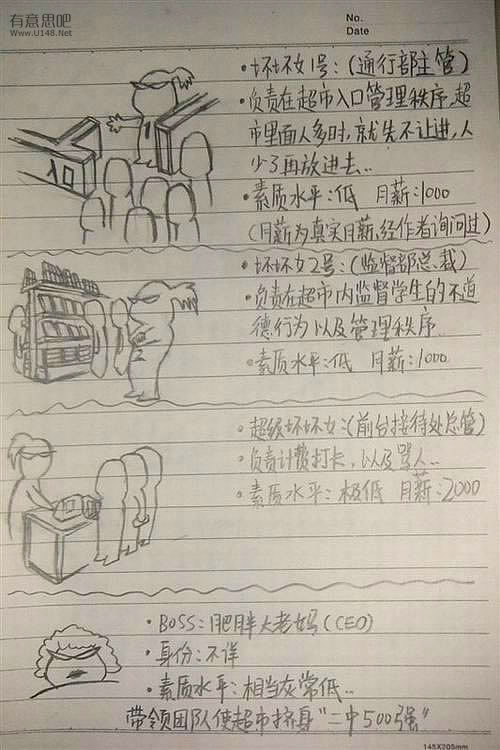 有意思吧
Www.U148.Net
No.
Date
·坏坏女1号:(通行部主管)
·负责在超市入口管理秩序,超
市里面人多时,就先不让进,人
少了再放进去..
·素质水平:低 月薪:1000
(月薪为真实月薪,经作者询问过)
·坏坏女2号:(监督部总裁)
·负责在超市内监督学生的不道
德行为以及管理秩序
·素质水平:低 月薪:1000
·超级坏坏女:(前台接待处总管)
·负责计费打卡,以及骂人..
·素质水平:极低 月薪:2000
·BOSS:肥胖大老妈(CEO)
·身份:不详
·素质水平:相当灰常低..
带领团队使超市挤身"二中500强"
145X205mm